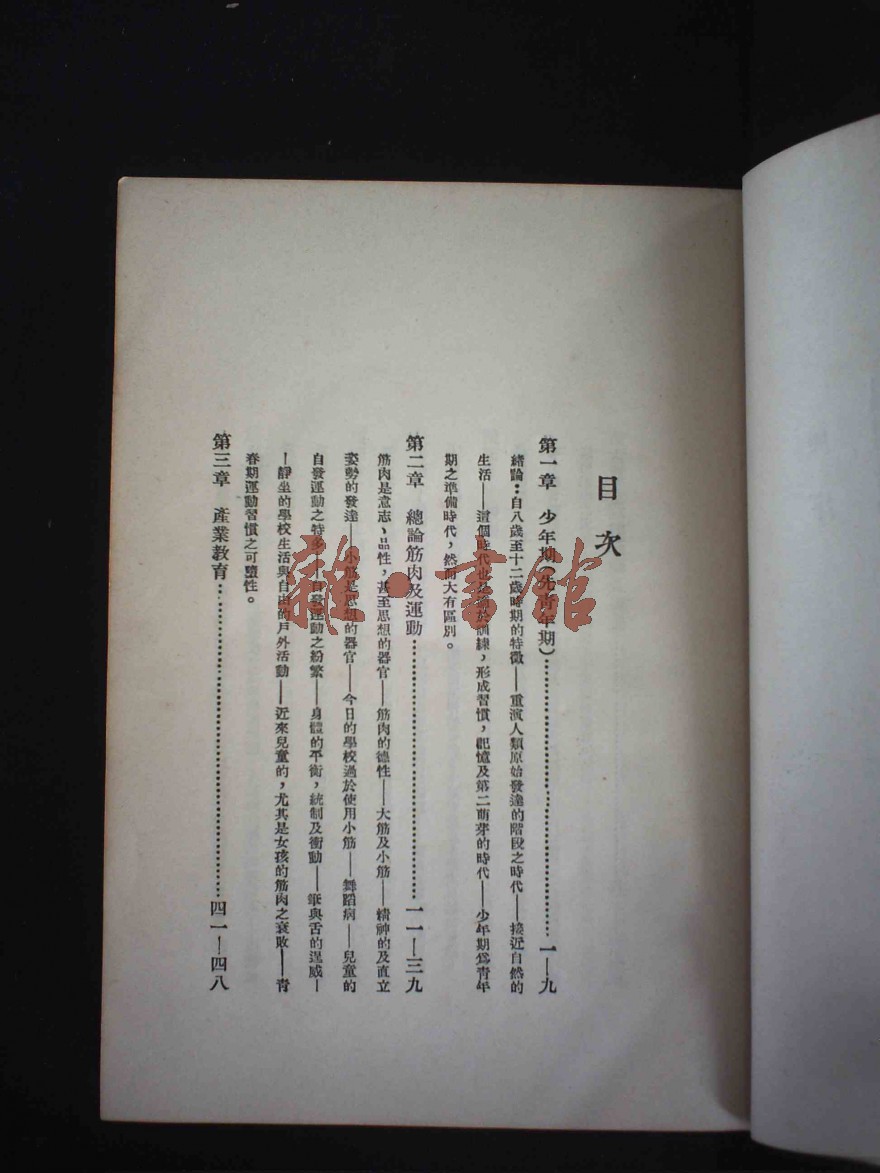 目次
第一章 少年期(先青年期)…………一—九
緒論:自八歲至十二歲時期的特徵——重演人類原始發達的階段之時代——接近自然的
生活——這個時代也是適於訓練,形成習慣,記憶及第二萌芽的時代——少年期爲青年
期之準備時代,然而大有區別。
第二章 總論筋肉及運動…………一一—三九
筋肉是意志、品性,甚至思想的器官——筋肉的德性——大筋及小筋——精神的及直立
姿勢的發達——小筋是思想的器官——今日的學校過於使用小筋——舞蹈病——兒童的
自發運動之特多——自發運動之紛繁——身體的平衡,統制及衝動——筆與舌的逞威—
—靜坐的學校生活與自由的戶外活動——近來兒童的,尤其是女孩的筋肉之衰敗——青
春期運動習慣之可塑性。
第三章 產業教育…………四一—四八
雜·書館